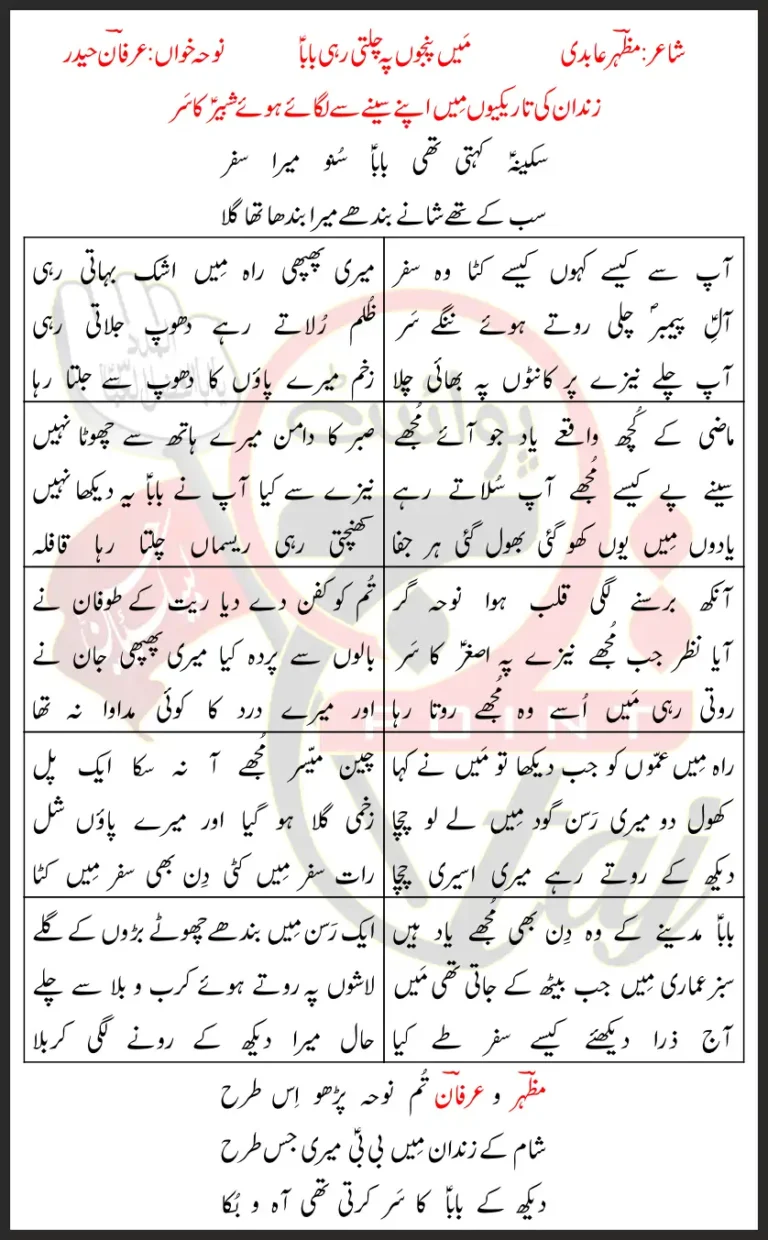 شاعر: مظہرؔ عابدی مَیں پنجوں پہ چلتی رہی باباؑ نوحہ خواں: عرفانؔ حیدر
زندان کی تاریکیوں مِیں اپنے سینے سے لگائے ہوئے شبیرؑ کا سَر
سکینہؑ کہتی تھی باباؑ سُنو میرا سفر
سب کے تھے شانے بندھے میرا بندھا تھا گلا
آپ سے کیسے کہوں کیسے کٹا وہ سفر
آلِؑ پیمبرؐ چلی روتے ہوئے ننگے سَر
آپ چلے نیزے پر کانٹوں پہ بھائی چلا
میری پھپھی راہ مِیں اشک بہاتی رہی
ظُلم رُلاتے رہے دھوپ جلاتی رہی
زخم میرے پاؤں کا دھوپ سے جلتا رہا
ماضی کے کُچھ واقعے یاد جو آئے مُجھے
سینے پے کیسے مُجھے آپ سُلاتے رہے
یادوں مِیں یوں کھو گئی بھول گئی ہر جفا
صبر کا دامن میرے ہاتھ سے چھوٹا نہیں
نیزے سے کیا آپ نے باباؑ یہ دیکھا نہیں
کھنچتی رہی ریسماں چلتا رہا قافلہ
آنکھ برسنے لگی قلب ہوا نوحہ گر
آیا نظر جب مُجھے نیزے پہ اصغرؑ کا سَر
روتی رہی مَیں اُسے وہ مُجھے روتا رہا
تُم کو کفن دے دیا ریت کے طوفان نے
بالوں سے پردہ کیا میری پھپھی جان نے
اور میرے درد کا کوئی مداوا نہ تھا
راہ مِیں عمّوں کو جب دیکھا تو مَیں نے کہا
کھول دو میری رَسن گود مِیں لے لو چچا
دیکھ کے روتے رہے میری اسیری چچا
چین میّسر مُجھے آ نہ سکا ایک پل
زخمی گلا ہو گیا اور میرے پاؤں شل
رات سفر مِیں کٹی دِن بھی سفر مِیں کٹا
باباؑ مدینے کے وہ دِن بھی مُجھے یاد ہیں
سبز عماری مِیں جب بیٹھ کے جاتی تھی مَیں
آج ذرا دیکھئے کیسے سفر طے کیا
ایک رَسن مِیں بندھے چھوٹے بڑوں کے گلے
لاشوں پہ روتے ہوئے کرب و بلا سے چلے
حال میرا دیکھ کے رونے لگی کربلا
مظہرؔ و عرفانؔ تُم نوحہ پڑھو اِس طرح
شام کے زندان مِیں بی بیؑ میری جس طرح
دیکھ کے باباؑ کا سَر کرتی تھی آہ و بُکا
پوائنٹ
تاج
POINT
taj